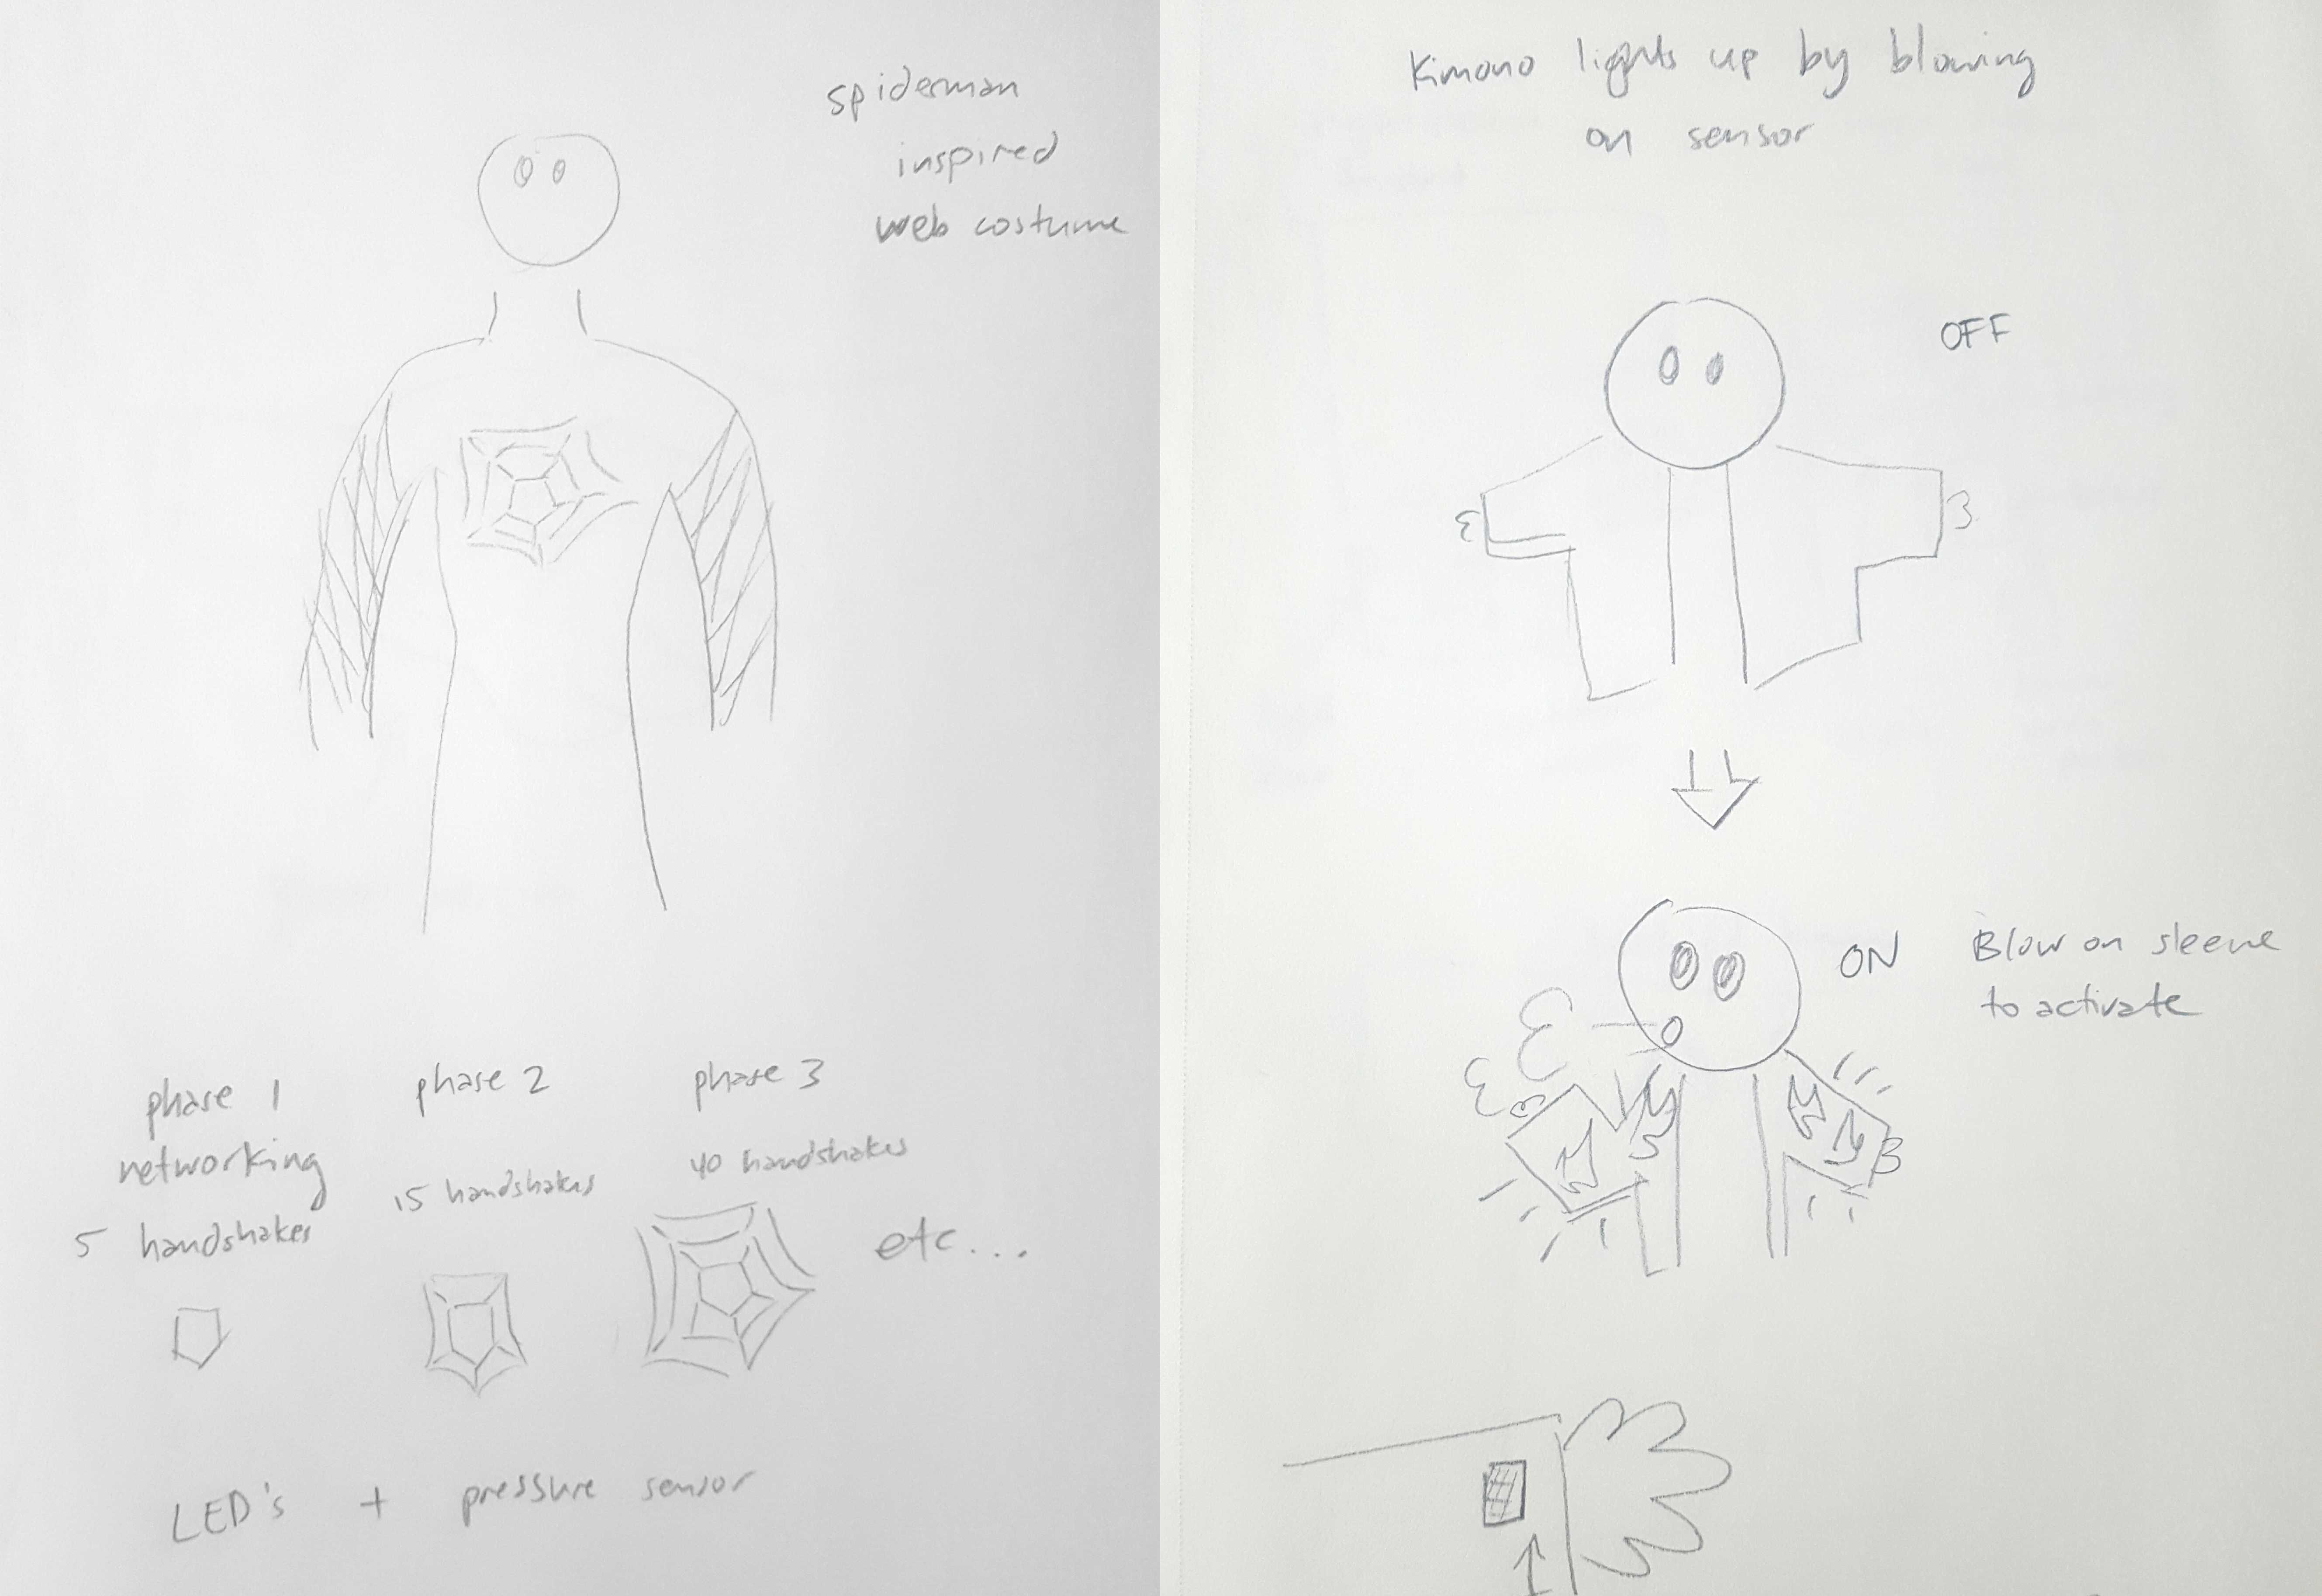 spiderman
inspired
web costume
phase 1
networking
5 handshakes
phase 2
15 handshakes
phase 3
40 handshakes
etc...
LED's + pressure sensor
Kimono lights up by blowing
on sensor
OFF
ON
Blow on sleeve
to activate